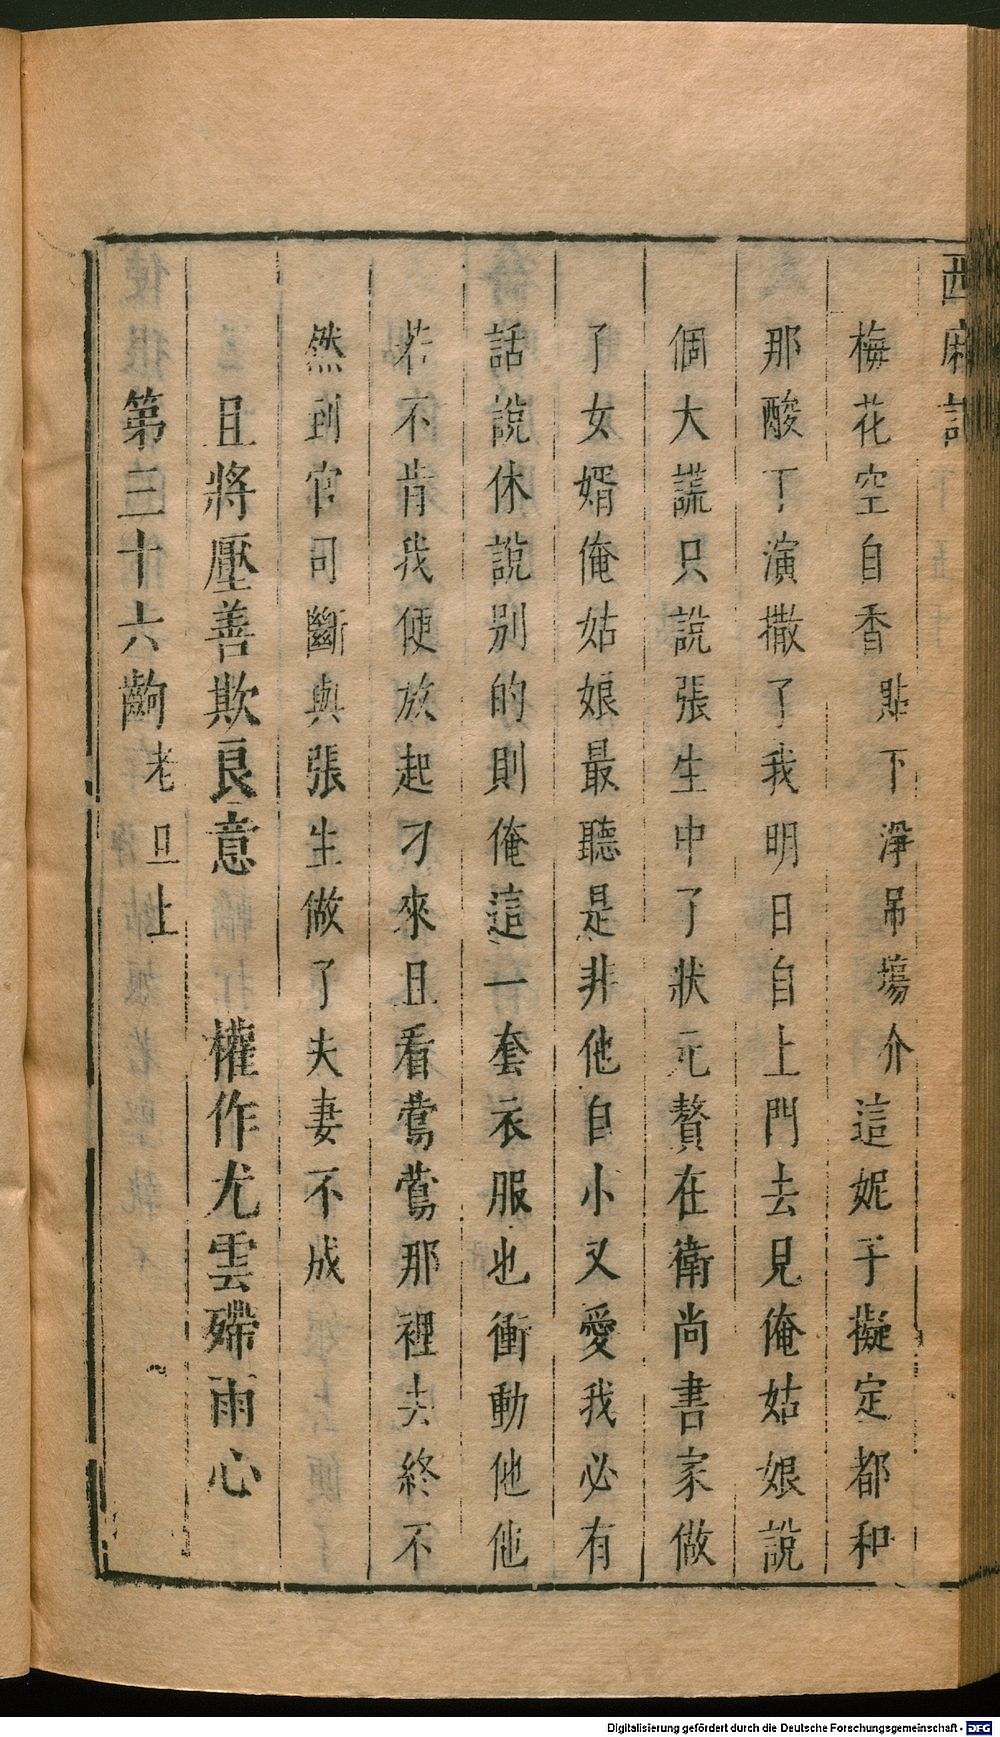 西廂記
梅花空自香貼下淨吊塲介這妮子擬定都和
那酸丁演撒了我明日自上門去見俺姑娘說
個大謊只說張生中了狀元贅在衛尚書家做
了女婿俺姑娘最聽是非他自小又愛我必有
話說休說别的則俺這一套衣服也衝動他他
若不肯我便放起刁來且看鶯鶯那裡去終不
然到官司斷與張生做了夫妻不成
且將壓善欺良意 權作尤雲殢雨心
第三十六齣老旦上
Digitalisierung gefördert durch die Deutsche Forschungsgemeinschaft - DFG